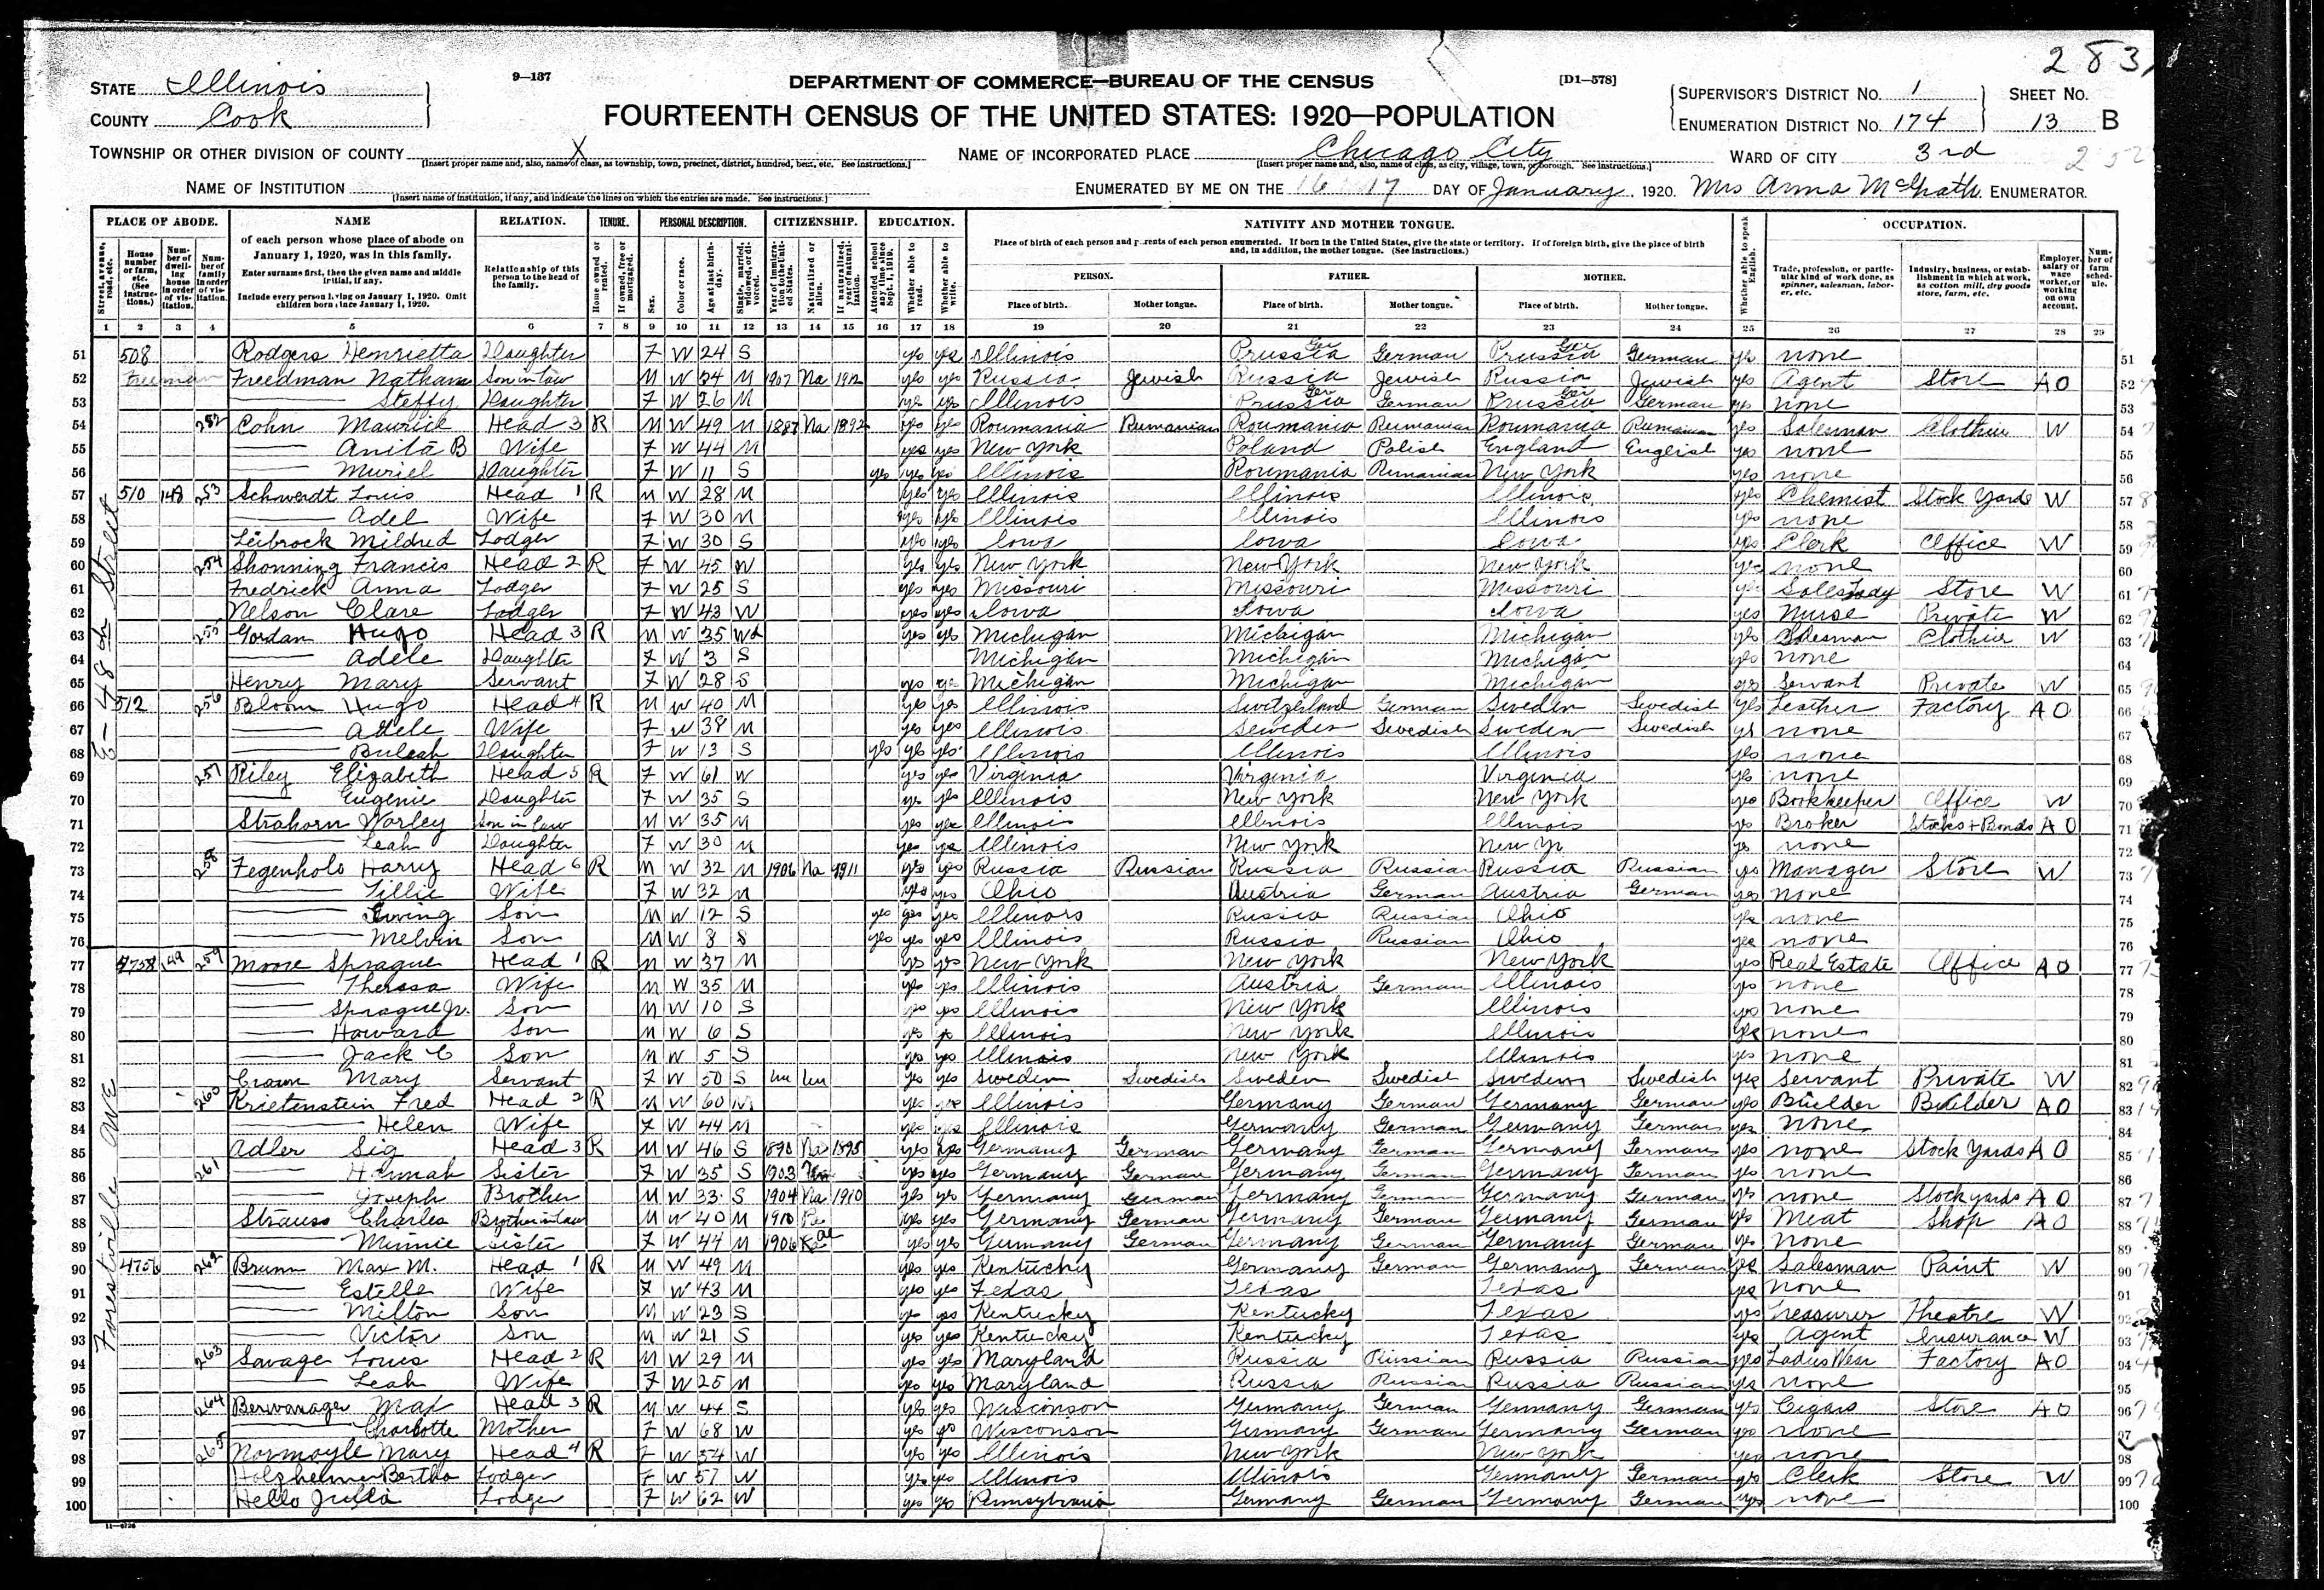 283
STATE Illinois
COUNTY Cook
9—137
DEPARTMENT OF COMMERCE—BUREAU OF THE CENSUS
[D1—578]
FOURTEENTH CENSUS OF THE UNITED STATES: 1920—POPULATION
SUPERVISOR'S DISTRICT No. 1
ENUMERATION DISTRICT No. 174
SHEET No. 13 B
TOWNSHIP OR OTHER DIVISION OF COUNTY X
[Insert proper name and, also, name of class, as township, town, precinct, district, hundred, beat, etc. See instructions.]
NAME OF INCORPORATED PLACE Chicago City
[Insert proper name and, also, name of class, as city, village, town, or borough. See instructions.]
WARD OF CITY 3rd
NAME OF INSTITUTION
[Insert name of institution, if any, and indicate the lines on which the entries are made. See instructions.]
ENUMERATED BY ME ON THE 16 17 DAY OF January, 1920. Mrs Anna McGrath ENUMERATOR.
PLACE OF ABODE. NAME RELATION. TENURE. PERSONAL DESCRIPTION. CITIZENSHIP. EDUCATION. NATIVITY AND MOTHER TONGUE. OCCUPATION.
of each person whose place of abode on January 1, 1920, was in this family.
Enter surname first, then the given name and middle initial, if any.
Include every person living on January 1, 1920. Omit children born since January 1, 1920.
Relationship of this person to the head of the family.
Place of birth of each person and parents of each person enumerated. If born in the United States, give the state or territory. If of foreign birth, give the place of birth and, in addition, the mother tongue. (See instructions.)
PERSON. FATHER. MOTHER.
Place of birth. Mother tongue. Place of birth. Mother tongue. Place of birth. Mother tongue.
1 2 3 4 5 6 7 8 9 10 11 12 13 14 15 16 17 18 19 20 21 22 23 24 25 26 27 28 29
E - 48th Street
51 508 Rodgers Henrietta Daughter F W 24 S yes yes Illinois Prussia Ger German Prussia Ger German yes none 51
52 Freedman Nathan Son in law M W 34 M 1907 Na 1912 yes yes Russia Jewish Russia Jewish Russia Jewish yes Agent Store A O 52
53 Steffy Daughter F W 26 M yes yes Illinois Prussia Ger German Prussia Ger German yes none 53
54 252 Cohn Maurice Head 3 R M W 49 M 1887 Na 1892 yes yes Roumania Rumanian Roumania Rumanian Roumania Rumanian yes Salesman Clothier W 54
55 Anita B Wife F W 44 M yes yes New York Poland Polish England English yes none 55
56 Muriel Daughter F W 11 S yes yes yes Illinois Roumania Rumanian New York yes none 56
57 510 148 253 Schwerdt Louis Head 1 R M W 28 M yes yes Illinois Illinois Illinois yes Chemist Stock Yards W 57
58 Adel Wife F W 30 M yes yes Illinois Illinois Illinois yes none 58
59 Leibrock Mildred Lodger F W 30 S yes yes Iowa Iowa Iowa yes Clerk Office W 59
60 254 Shonning Francis Head 2 R F W 45 W yes yes New York New York New York yes none 60
61 Fredrick Anna Lodger F W 25 S yes yes Missouri Missouri Missouri yes Saleslady Store W 61
62 Nelson Clare Lodger F W 43 W yes yes Iowa Iowa Iowa yes Nurse Private W 62
63 255 Gordan Hugo Head 3 R M W 35 Wd yes yes Michigan Michigan Michigan yes Salesman Clothier W 63
64 Adele Daughter F W 3 S Michigan Michigan Michigan yes none 64
65 Henry Mary Servant F W 28 S yes yes Michigan Michigan Michigan yes Servant Private W 65
66 512 256 Bloom Hugo Head 4 R M W 40 M yes yes Illinois Switzerland German Sweden Swedish yes Leather Factory A O 66
67 Adele Wife F W 38 M yes yes Illinois Sweden Swedish Sweden Swedish yes none 67
68 Buleah Daughter F W 13 S yes yes yes Illinois Illinois Illinois yes none 68
69 257 Riley Elizabeth Head 5 R F W 61 W yes yes Virginia Virginia Virginia yes none 69
70 Eugenie Daughter F W 35 S yes yes Illinois New York New York yes Bookkeeper Office W 70
71 Strahorn Worley Son in law M W 35 M yes yes Illinois Illinois Illinois yes Broker Stocks + Bonds A O 71
72 Leah Daughter F W 30 M yes yes Illinois New York New Yr yes none 72
73 258 Fegenholo Harry Head 6 R M W 32 M 1906 Na 1911 yes yes Russia Russian Russia Russian Russia Russian yes Manager Store W 73
74 Tillie Wife F W 32 M yes yes Ohio Austria German Austria German yes none 74
75 Erving Son M W 12 S yes yes yes Illinois Russia Russian Ohio yes none 75
76 Melvin Son M W 8 S yes yes yes Illinois Russia Russian Ohio yes none 76
Forestville Ave
77 4758 149 259 Moore Sprague Head 1 R M W 37 M yes yes New York New York New York yes Real Estate Office A O 77
78 Theresa Wife M W 35 M yes yes Illinois Austria German Illinois yes none 78
79 Sprague Jr. Son M W 10 S yes yes Illinois New York Illinois yes none 79
80 Howard Son M W 6 S yes yes Illinois New York Illinois yes none 80
81 Jack C Son M W 5 S yes yes Illinois New York Illinois yes none 81
82 Crown Mary Servant F W 50 S Un Un yes yes Sweden Swedish Sweden Swedish Sweden Swedish yes Servant Private W 82
83 260 Krietenstein Fred Head 2 R M W 60 M yes yes Illinois Germany German Germany German yes Builder Builder A O 83
84 Helen Wife F W 44 M yes yes Illinois Germany German Germany German yes none 84
85 Adler Sig Head 3 R M W 46 S 1890 Na 1895 yes yes Germany German Germany German Germany German yes none Stock Yards A O 85
86 261 Hannah Sister F W 35 S 1903 yes yes Germany German Germany German Germany German yes none 86
87 Joseph Brother M W 33 S 1904 Na 1910 yes yes Germany German Germany German Germany German yes none Stock yards A O 87
88 Strauss Charles Brother in Law M W 40 M 1910 Pa yes yes Germany German Germany German Germany German yes Meat Shop A O 88
89 Minnie Sister F W 44 M 1906 yes yes Germany German Germany German Germany German yes none 89
90 4756 262 Brunn Max M. Head 1 R M W 49 M yes yes Kentucky Germany German Germany German yes Salesman Paint W 90
91 Estelle Wife F W 43 M yes yes Texas Texas Texas yes none 91
92 Milton Son M W 23 S yes yes Kentucky Kentucky Texas yes Treasurer Theatre W 92
93 Victor Son M W 21 S yes yes Kentucky Kentucky Texas yes Agent Insurance W 93
94 263 Savage Louis Head 2 R M W 29 M yes yes Maryland Russia Russian Russia Russian yes Ladies Wear Factory A O 94
95 Leah Wife F W 25 M yes yes Maryland Russia Russian Russia Russian yes none 95
96 264 Berwanager Max Head 3 R M W 44 S yes yes Wisconson Germany German Germany German yes Cigars Store A O 96
97 Charlotte Mother F W 68 W yes yes Wisconson Germany German Germany German yes none 97
98 265 Normoyle Mary Head 4 R F W 54 W yes yes Illinois New York New York yes none 98
99 Holzheimer Bertha Lodger F W 57 W yes yes Illinois Illinois Germany German yes Clerk Store W 99
100 Hello Julia Lodger F W 62 W yes yes Pennsylvania Germany German Germany German yes none 100